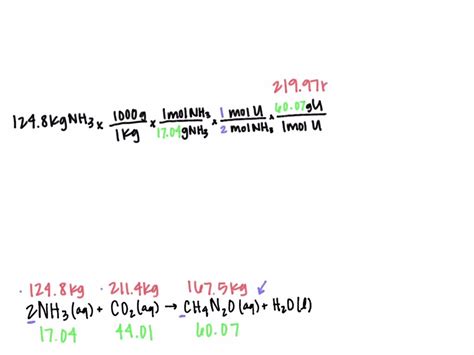 219.97r
124.8kgNH3 x 1000g/1kg x 1molNH3/17.04gNH3 x 1 mol U/2 molNH3 x 60.07gU/1mol U
124.8kg 211.4kg 167.5kg
2NH3(aq) + CO2(aq) → CH4N2O(aq) + H2O(l)
17.04 44.01 60.07